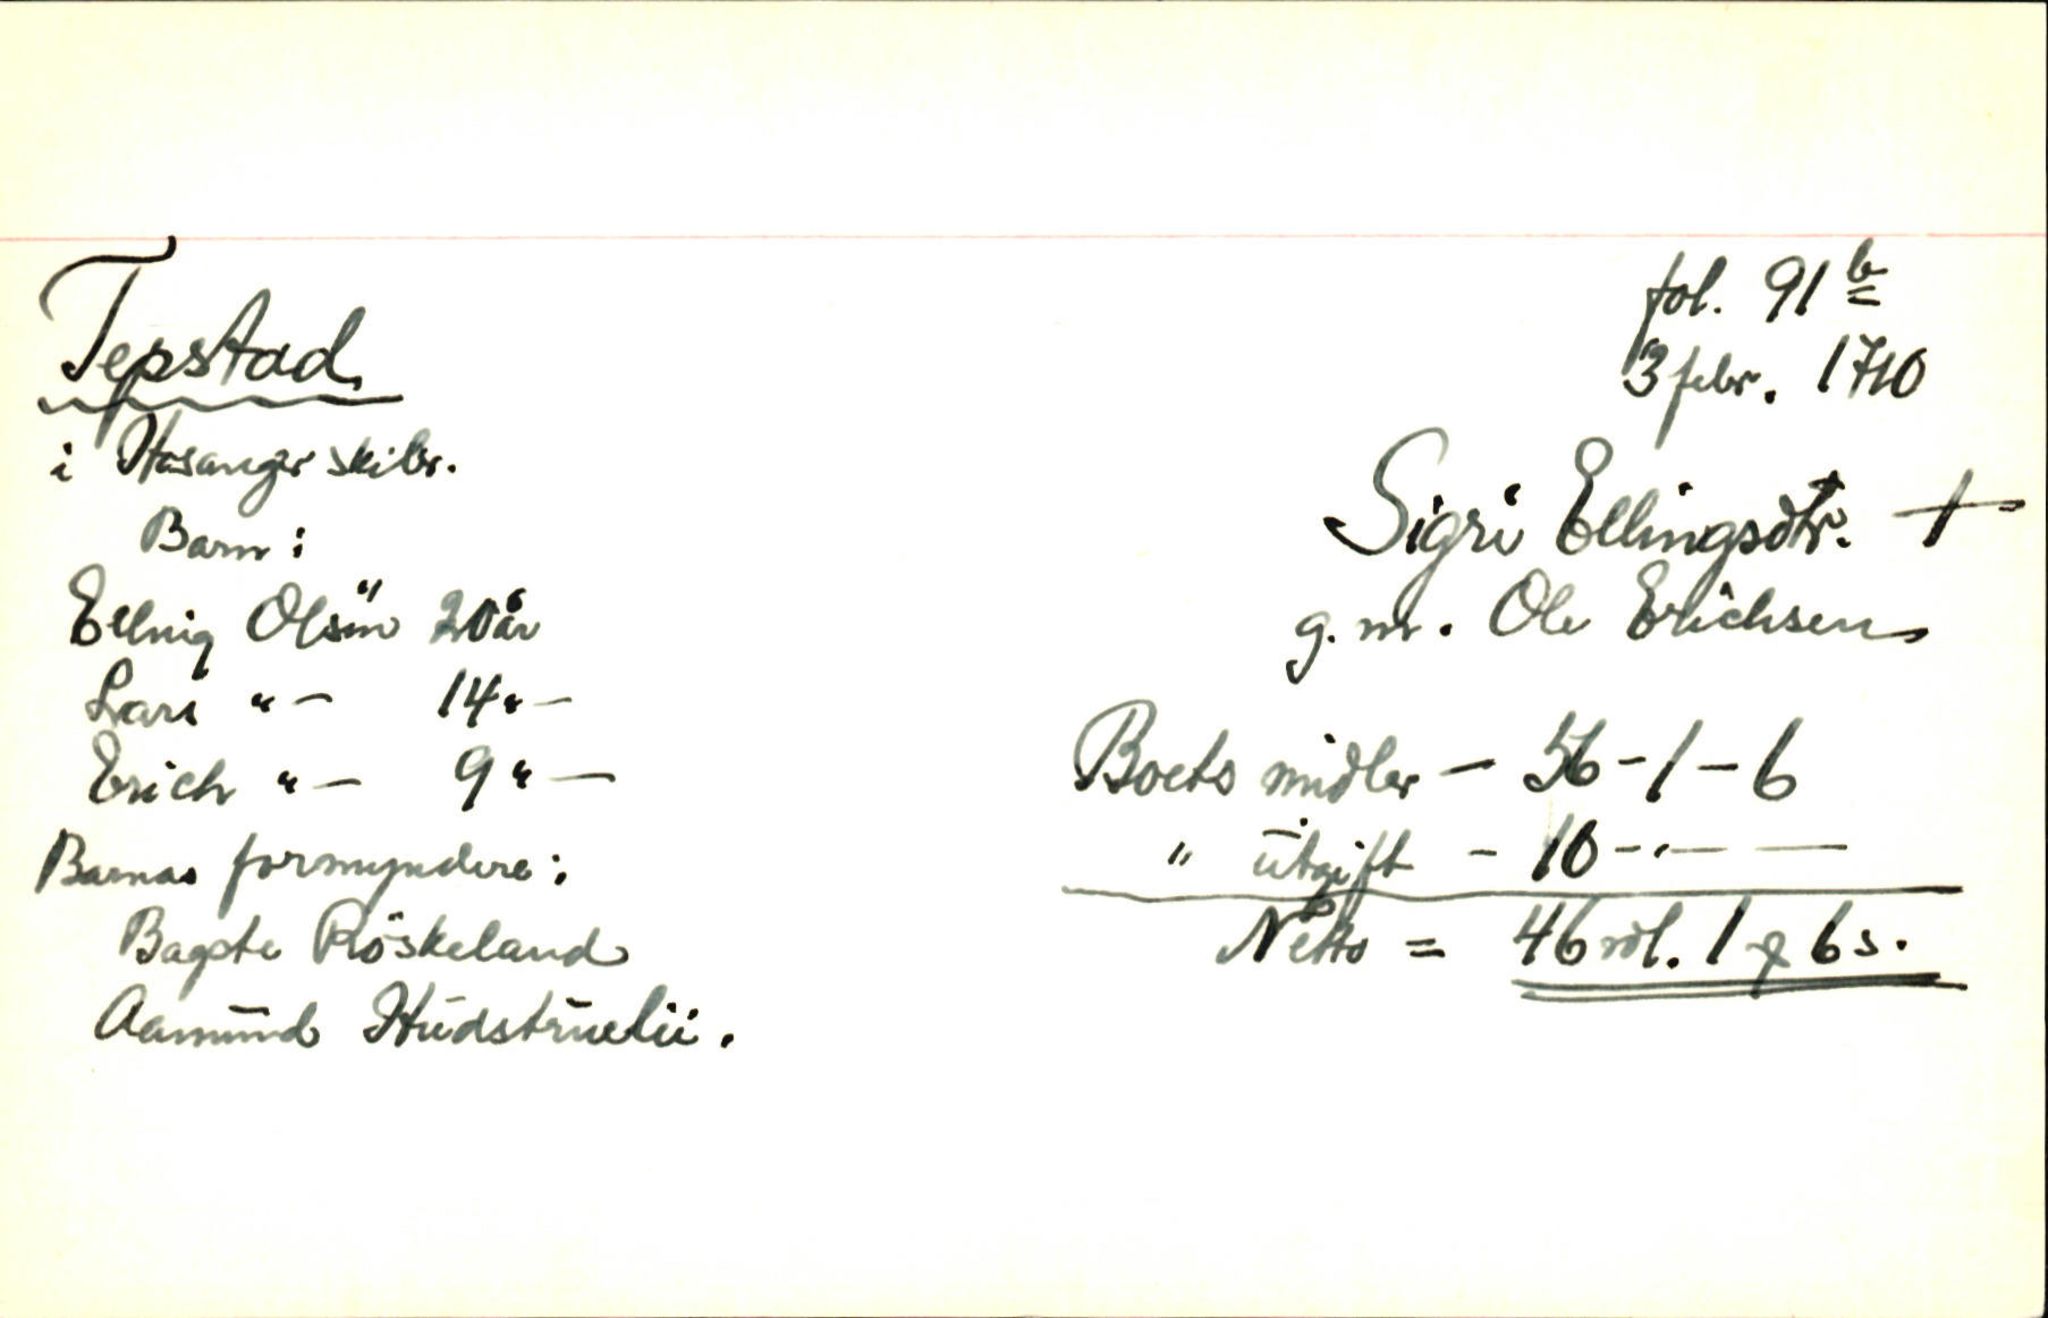 Tepstad
i Hosanger skibr.
Barn:
Elling Olsen 20 år
Lars "— 14 "—
Erich "— 9 "—
Barnas formyndere:
Bagste Röskeland
Aamund
fol. 91 b
3 febr. 1710
Sigri Ellingsdtr. +
g. m. Ole Erichsen
Boets midler — 56 - 1 - 6
" utgift - 10 - " — —
Netto = 46 rdl. 1 6 s.